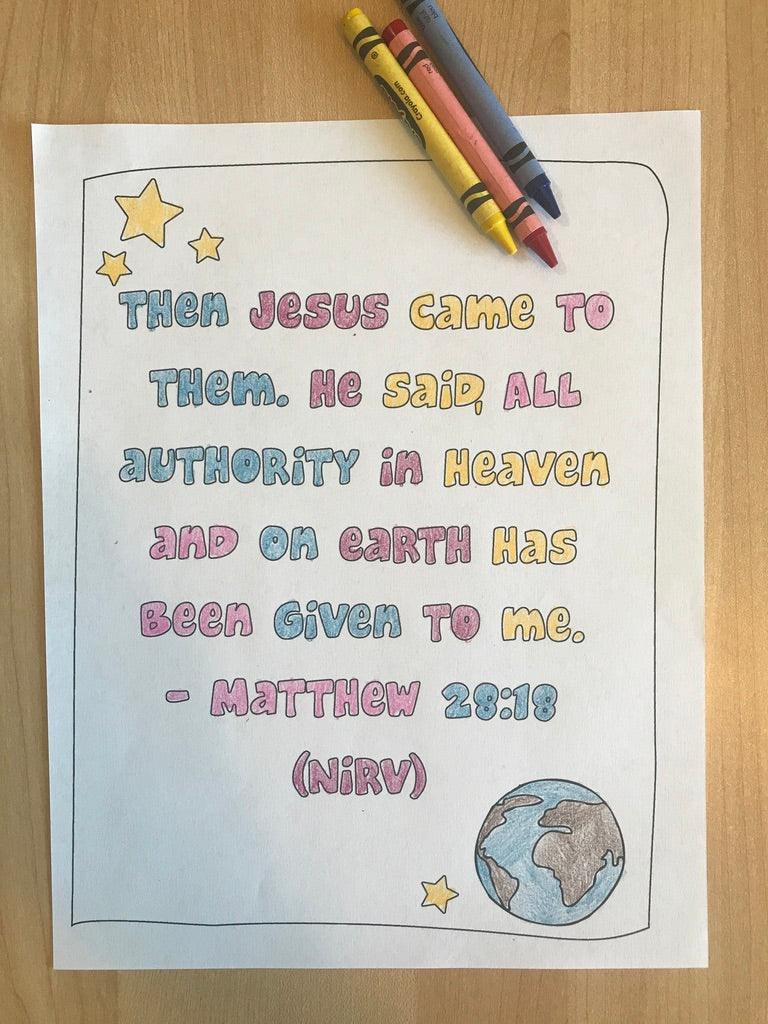 Crayola.com
red
THen Jesus came TO
THem. He saiD, ALL
auTHORiTY in Heaven
anD on eaRTH Has
Been Given TO me.
- MaTTHew 28:18
(NiRV)